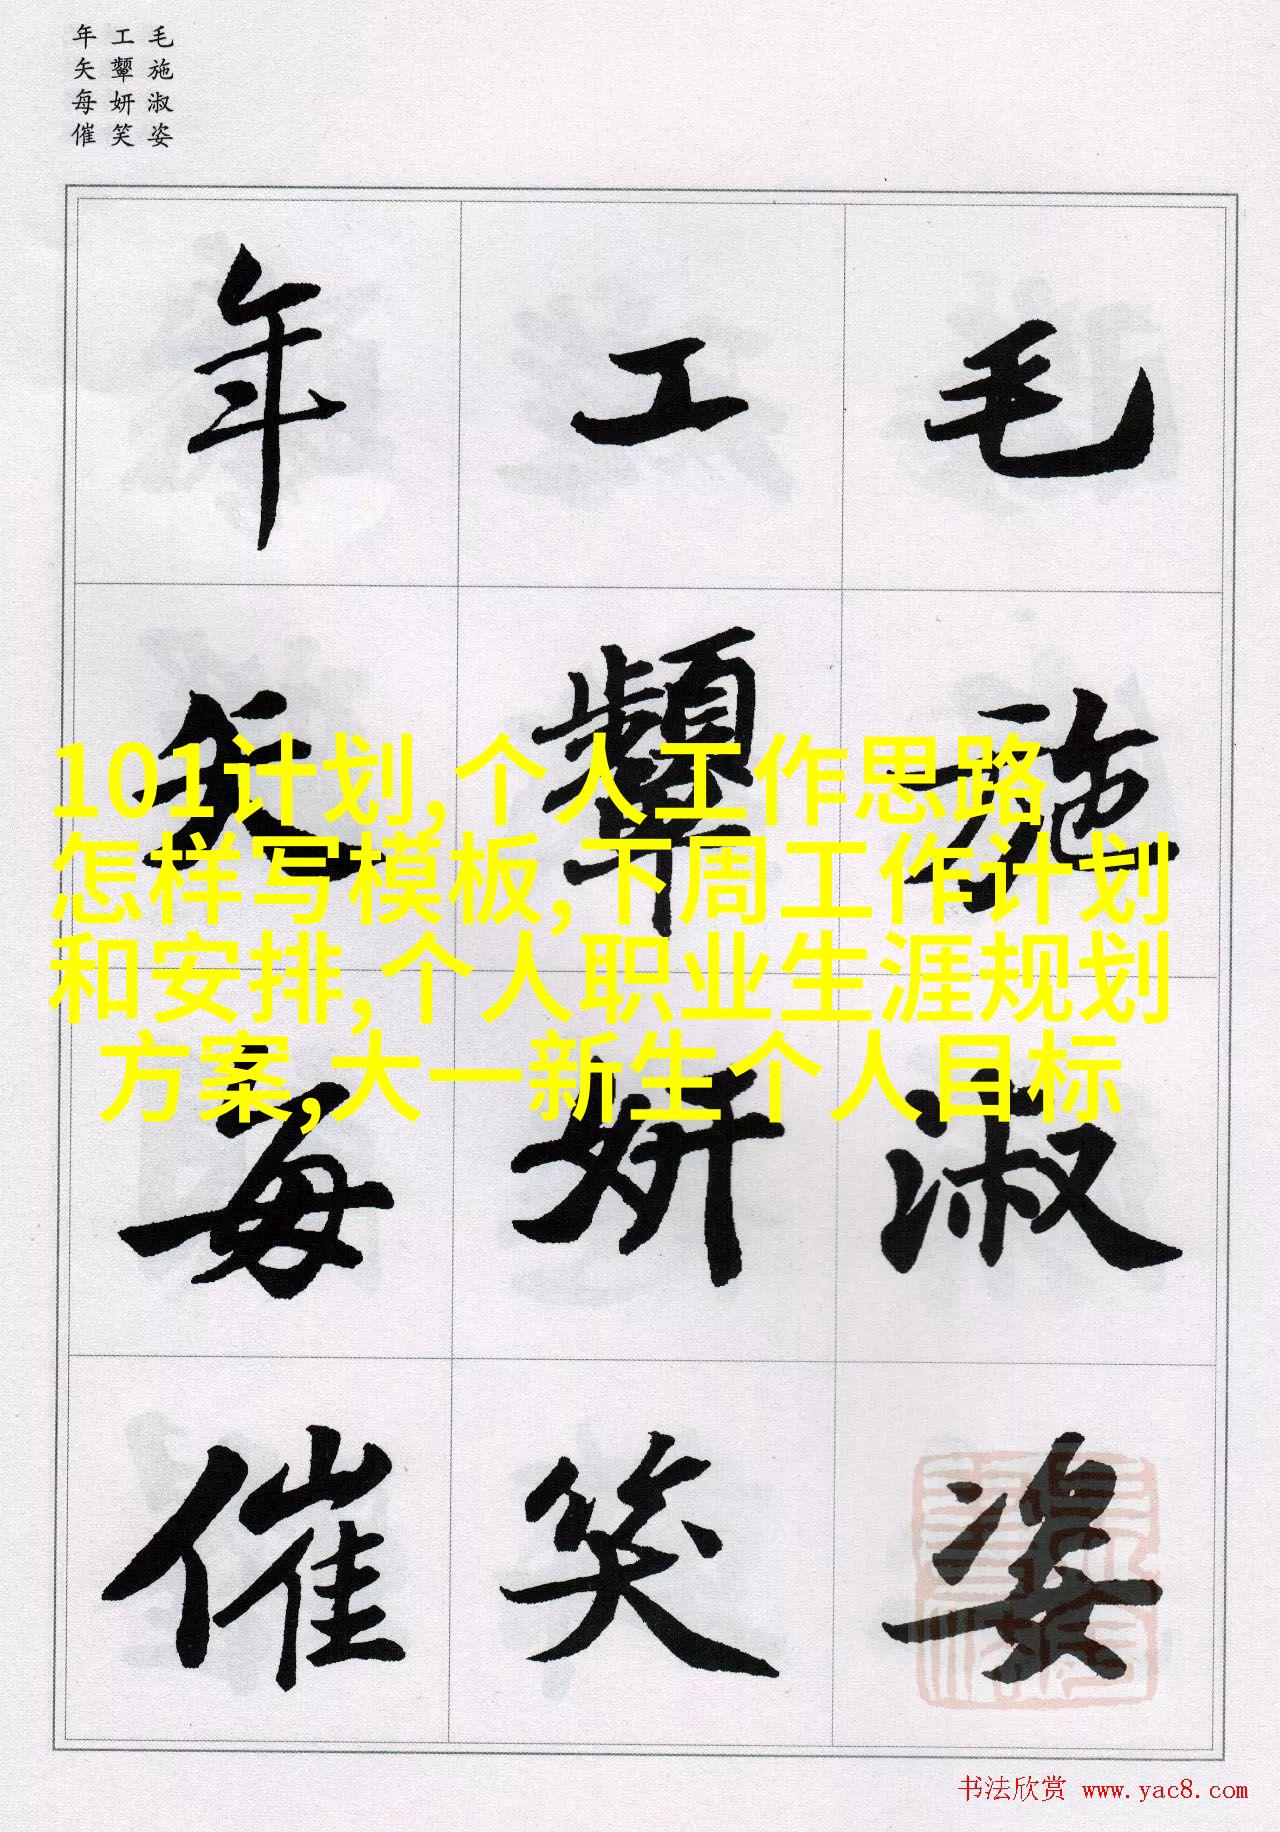 年 工 毛
矢 颦 施
每 妍 淑
催 笑 姿
年 工 毛
矢 颦 施
每 妍 淑
催 笑 姿
101计划,个人工作思路
怎样写模板,下周工作计划
和安排,个人职业生涯规划
方案,大一新生个人目标
书法欣赏 www.yac8.com